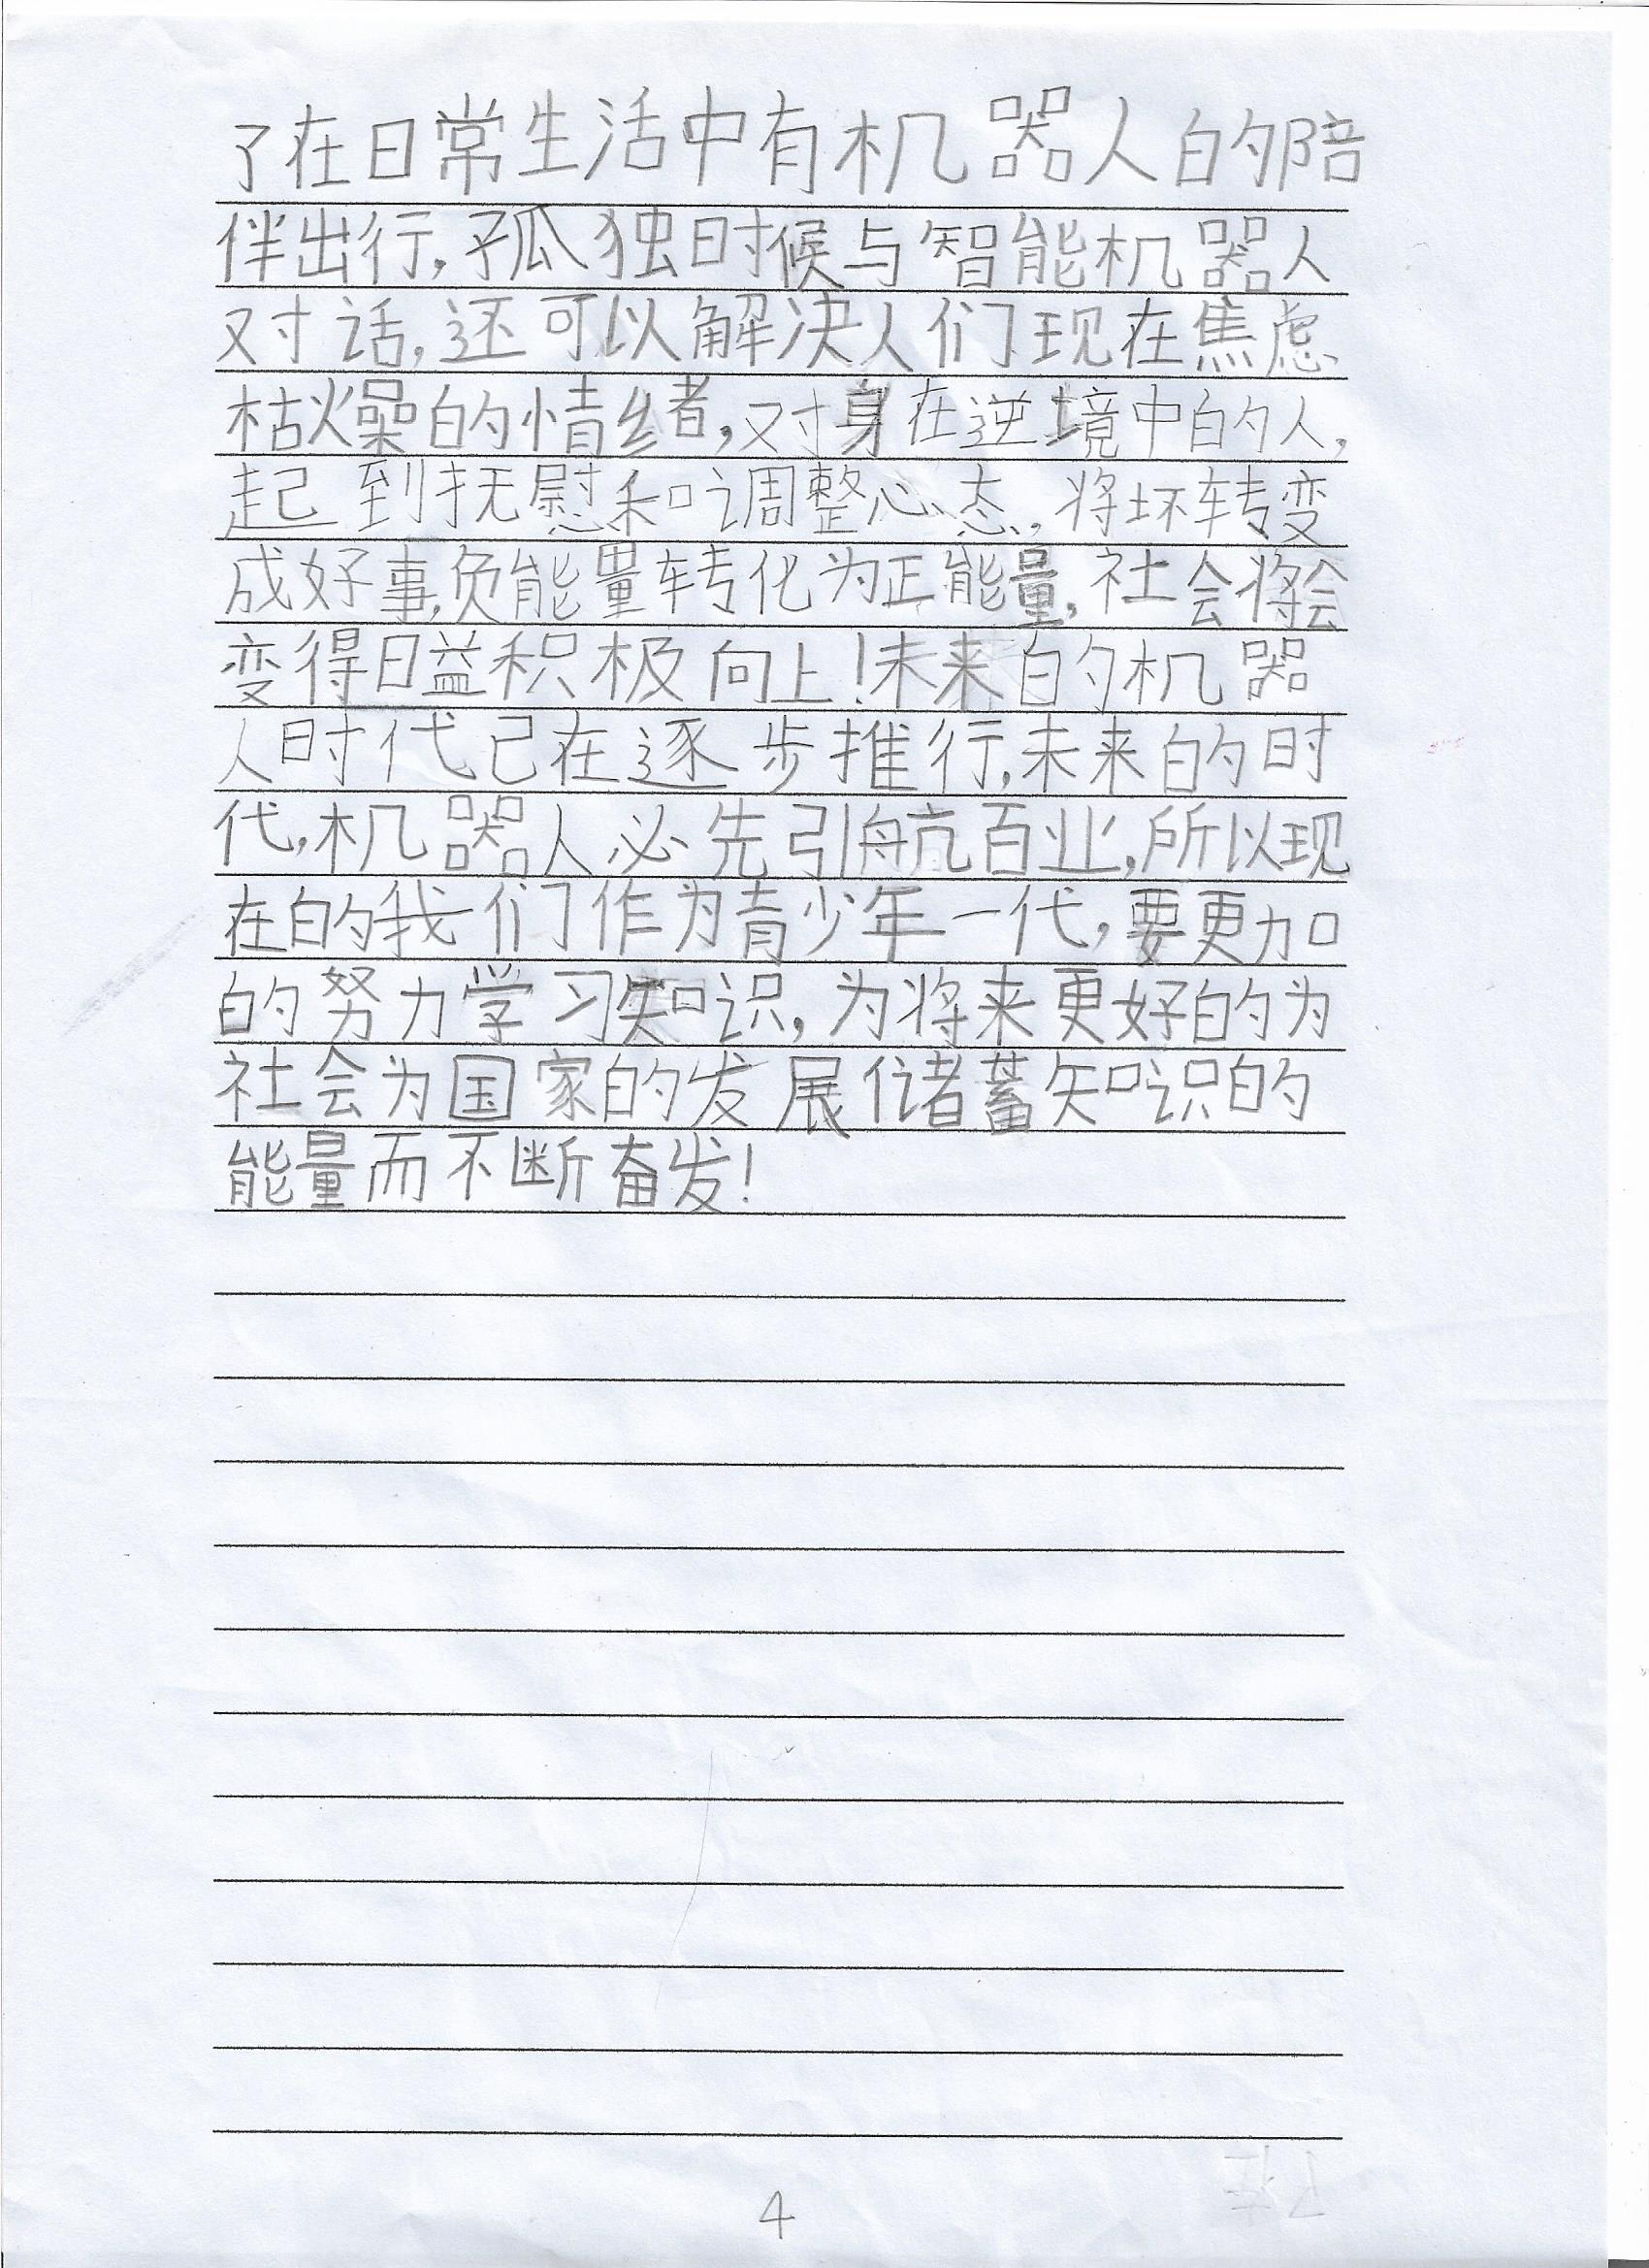 了在日常生活中有机器人的陪
伴出行,孤独时候与智能机器人
对话,还可以解决人们现在焦虑
枯燥的情绪,对身在逆境中的人,
起到抚慰和调整心态,将坏转变
成好事,负能量转化为正能量,社会将会
变得日益积极向上!未来的机器
人时代已在逐步推行,未来的时
代,机器人必先引航百业,所以现
在的我们作为青少年一代,要更加
的努力学习知识,为将来更好的为
社会为国家的发展储蓄知识的
能量而不断奋发!
4